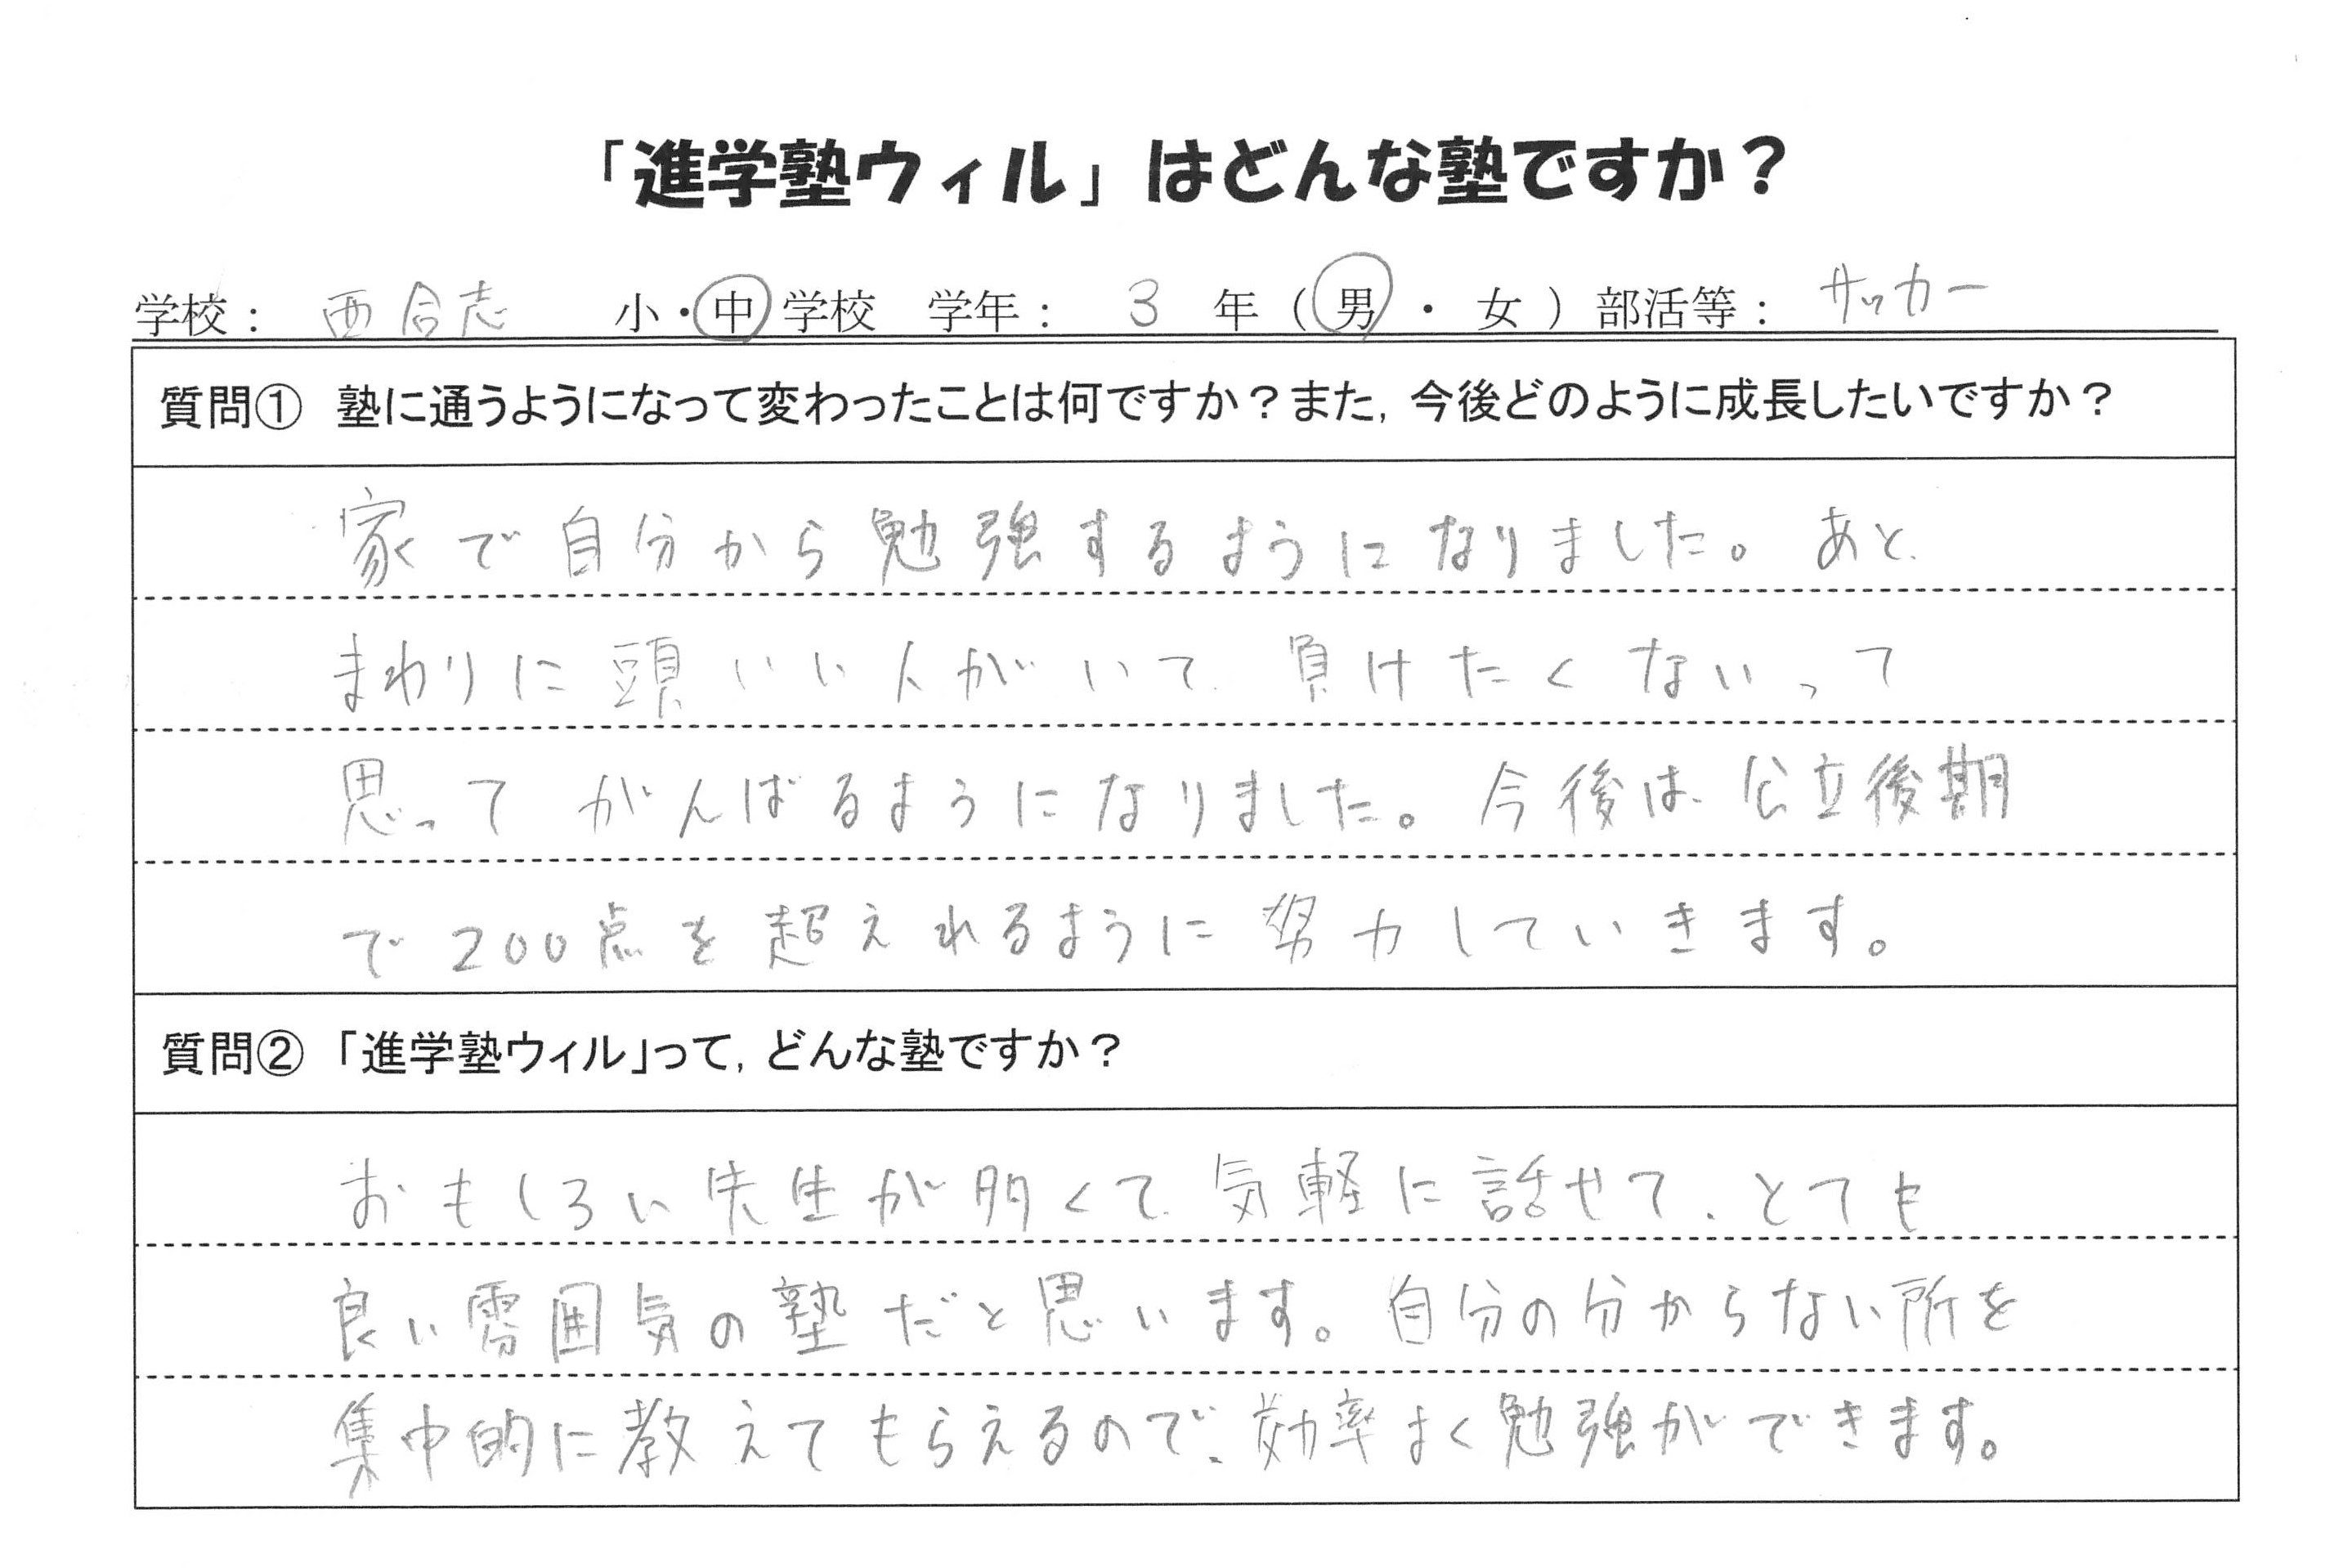 「進学塾ウィル」はどんな塾ですか？
学校： 西合志 小・中学校 学年： 3 年（ 男 ・ 女 ）部活等： サッカー
質問① 塾に通うようになって変わったことは何ですか？また，今後どのように成長したいですか？
家で自分から勉強するようになりました。あと、
まわりに頭いい人がいて、負けたくないって
思ってがんばるようになりました。今後は、公立後期
で200点を超えれるように努力していきます。
質問② 「進学塾ウィル」って，どんな塾ですか？
おもしろい先生が多くて、気軽に話せて、とても
良い雰囲気の塾だと思います。自分の分からない所を
集中的に教えてもらえるので、効率よく勉強ができます。